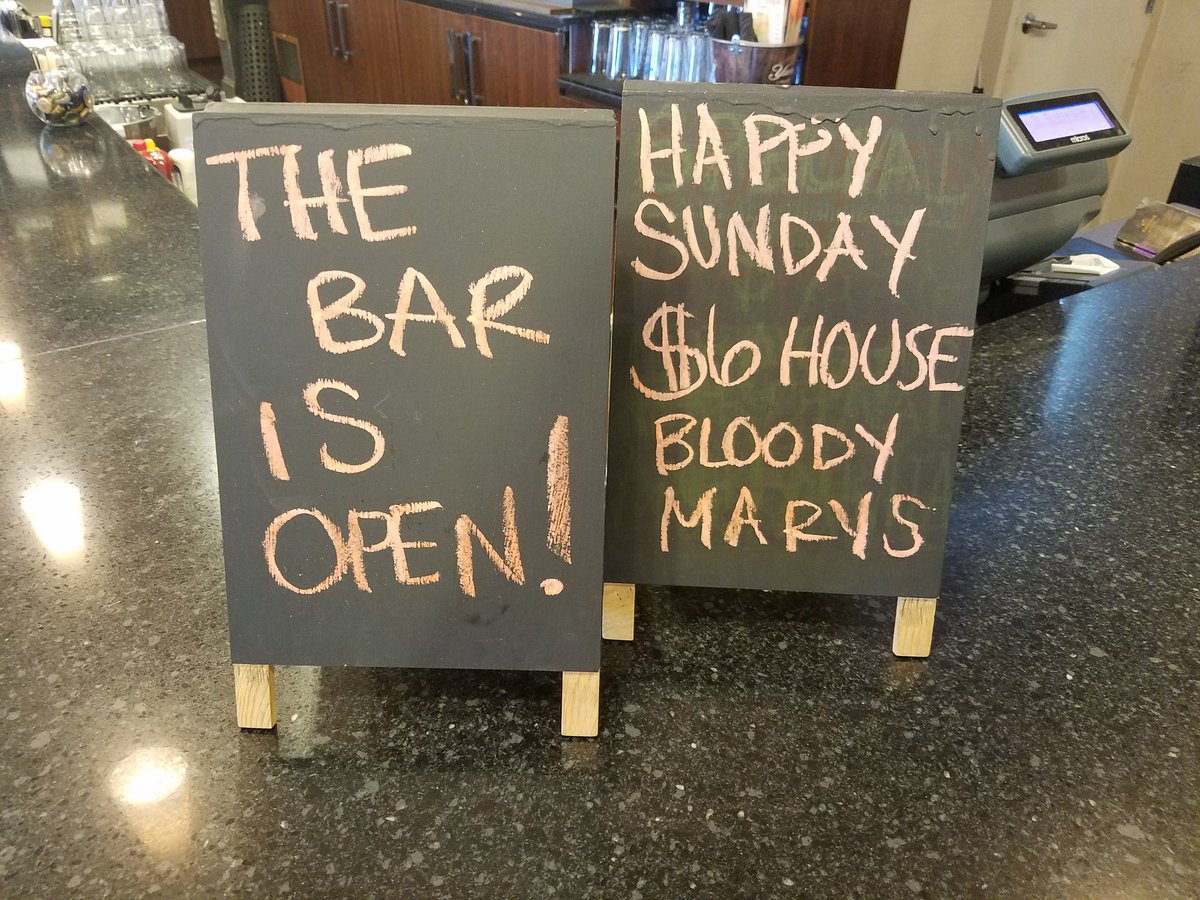 THE
BAR
IS
OPEN!
HAPPY
SUNDAY
$6 HOUSE
BLOODY
MARYS
micros